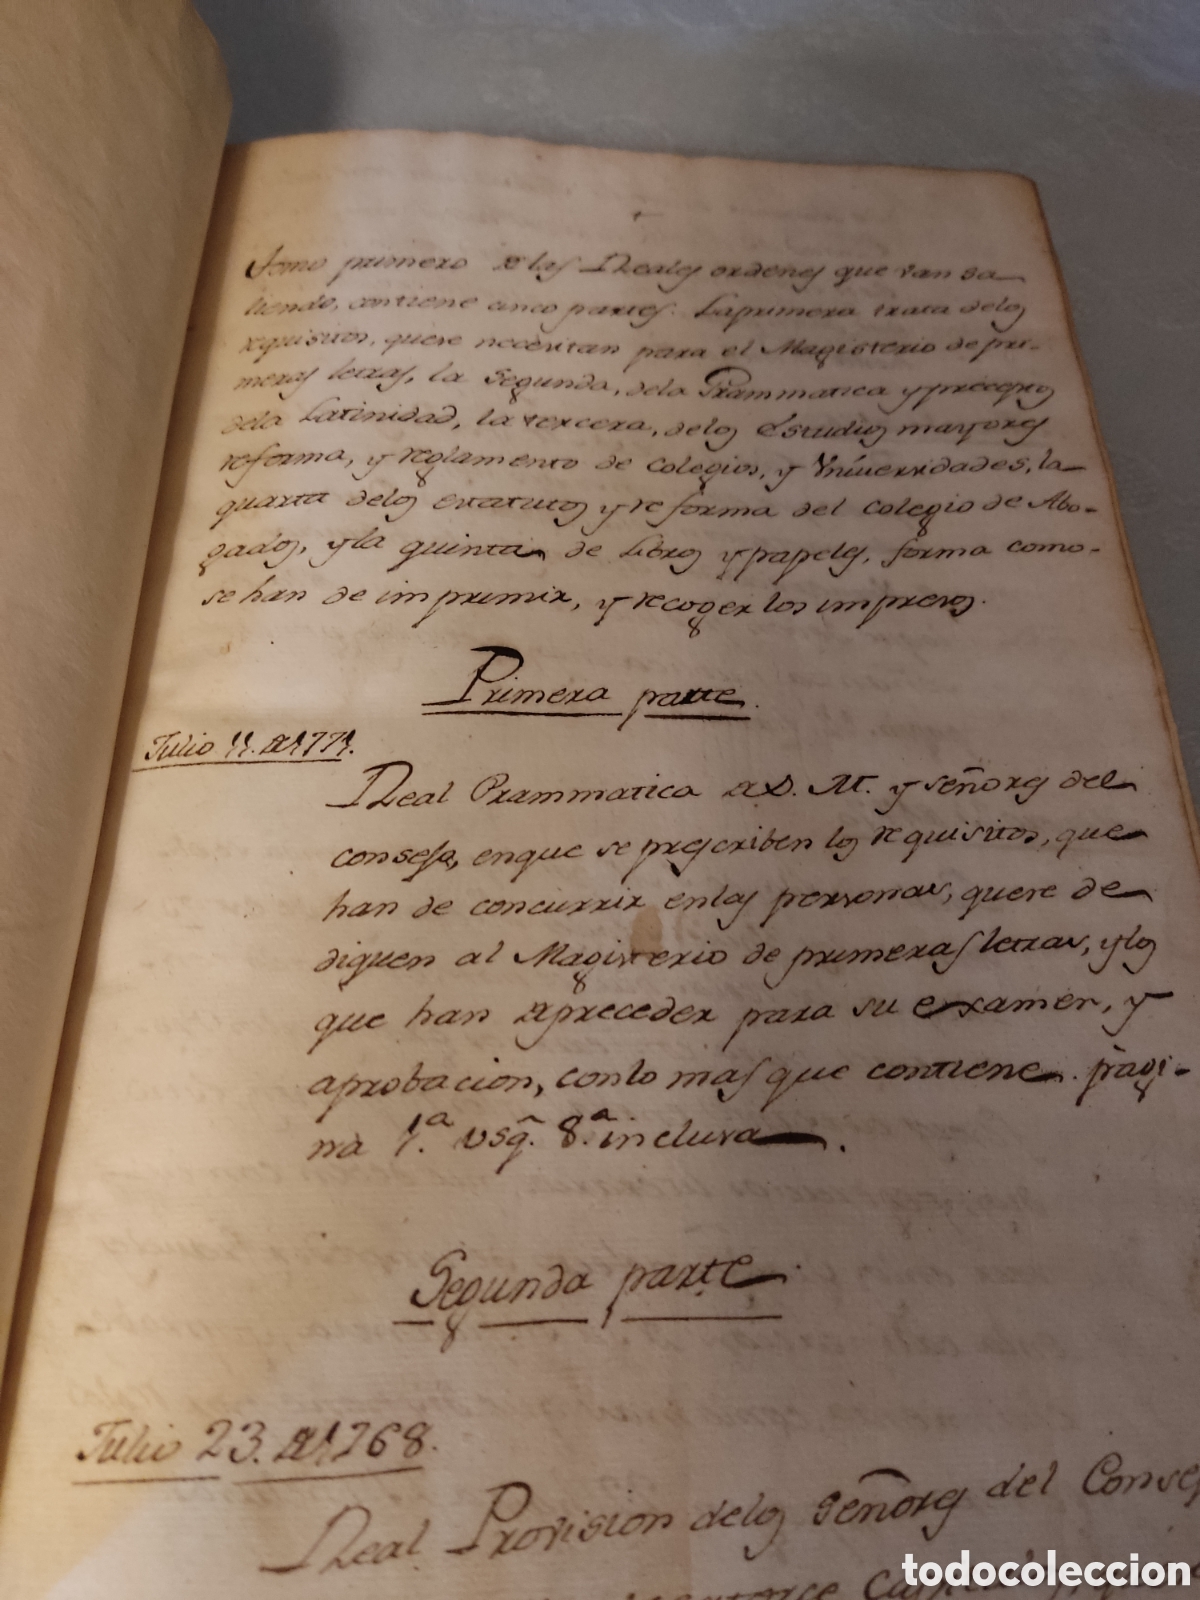 Tomo primero de las Reales ordenes que van sa
liendo, contiene cinco partes. La primera trata delos
requisitos, quese necesitan para el Magisterio de pri-
meras letras, la Segunda, dela Grammatica y preceptos
dela Latinidad, la tercera, delos Estudios mayores
reforma, y reglamento de Colegios, y Vniversidades, la
quarta delos estatutos y reforma del Colegio de Abo-
gados, y la quinta de Libros y papeles, forma como
se han de imprimir, y recoger los impresos.
Primera parte.
Julio 11. de 1771.
Real Prammatica de S. M. y señores del
consejo, enque se prescriben los requisitos, que
han de concurrir enlas personas, quese de
diquen al Magisterio de primeras letras, y los
que han de preceder para su examen, y
aprobacion, conlo mas que contiene. pàgi-
na 1.ª usq̃. 8.ª inclusa.
Segunda parte.
Julio 23. de 1768.
Real Provision delos Señores del Conse
todocoleccion